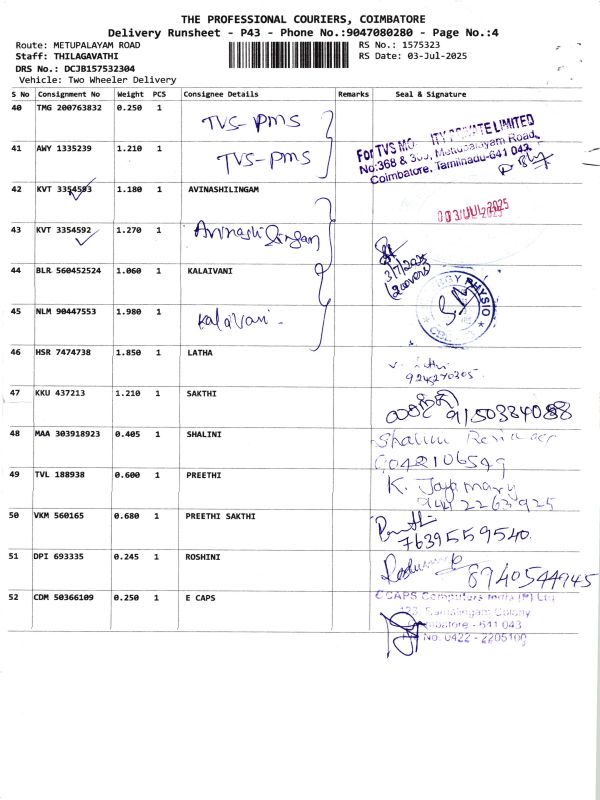 THE PROFESSIONAL COURIERS, COIMBATORE
Delivery Runsheet - P43 - Phone No.:9047080280 - Page No.:4
Route: METUPALAYAM ROAD
RS No.: 1575323
Staff: THILAGAVATHI
RS Date: 03-Jul-2025
DRS No.: DCJB157532304
Vehicle: Two Wheeler Delivery
S No Consignment No Weight PCS Consignee Details Remarks Seal & Signature
40 TMG 200763832 0.250 1 TVS-PMS
41 AWY 1335239 1.210 1 TVS-PMS
For TVS MO ITY PRIVATE LIMITED
No:368 & Mettupalayam Road,
Coimbatore, Tamilnadu-641 043.
42 KVT 3354593 1.180 1 AVINASHILINGAM
03 JUL 2025
43 KVT 3354592 1.270 1 Avinashilingam
3/7/2025
(2 covers)
44 BLR 560452524 1.060 1 KALAIVANI
PHYSIO
45 NLM 90447553 1.980 1 Kalaivani
46 HSR 7474738 1.850 1 LATHA
9245270305
47 KKU 437213 1.210 1 SAKTHI
48 MAA 303918923 0.405 1 SHALINI
Shalini
49 TVL 188938 0.600 1 PREETHI
K. Jayamary
944 2263 925
50 VKM 560165 0.680 1 PREETHI SAKTHI
7639559540
51 DPI 693335 0.245 1 ROSHINI
8940544945
52 CDM 50366109 0.250 1 E CAPS
CCAPS Computers India (P) Ltd
Ramalingam Colony
Coimbatore - 641 043
No: 0422 - 2205100